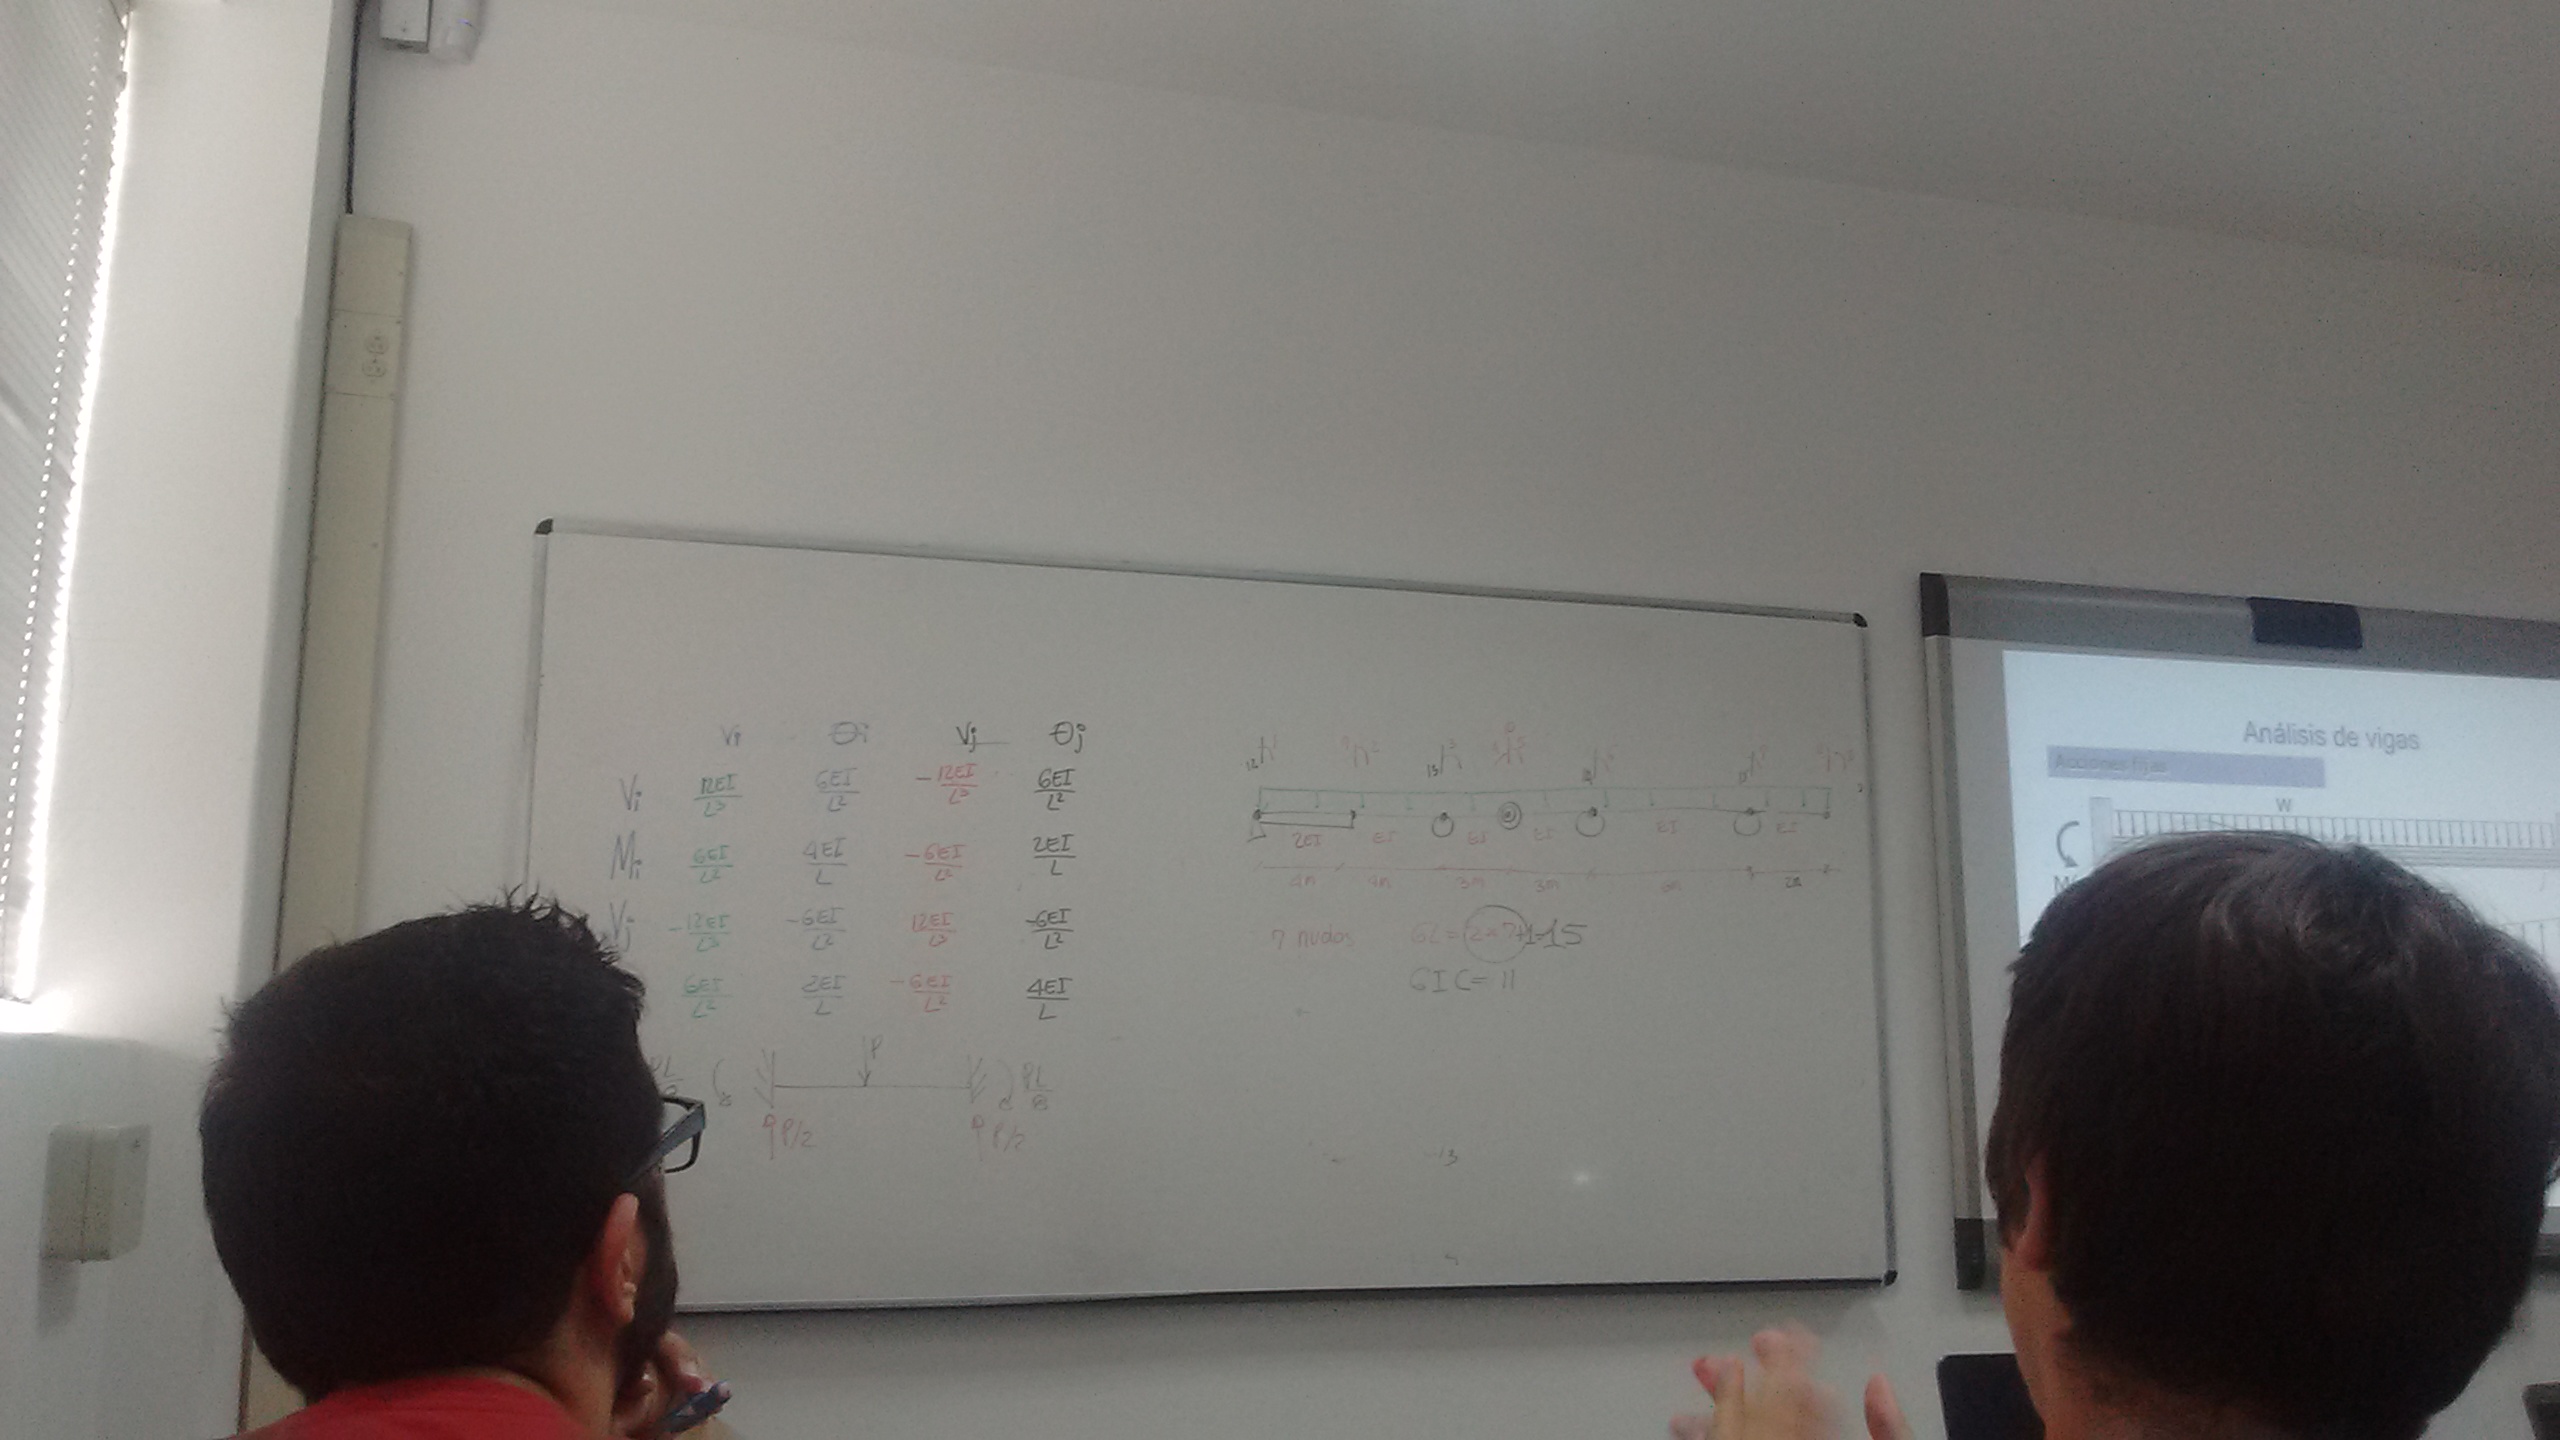 Vi θi Vj θj
Vi 12EI/L³ 6EI/L² -12EI/L³ 6EI/L²
Mi 6EI/L² 4EI/L -6EI/L² 2EI/L
Vj -12EI/L³ -6EI/L² 12EI/L³ -6EI/L²
6EI/L² 2EI/L -6EI/L² 4EI/L
P
PL/8
P/2 P/2
2EI EI EI EI EI EI
4m 4m 3m 3m 6m 2m
7 nudos GL=(2x7)+1=15
GIC=11
Análisis de vigas
Acciones fijas
W